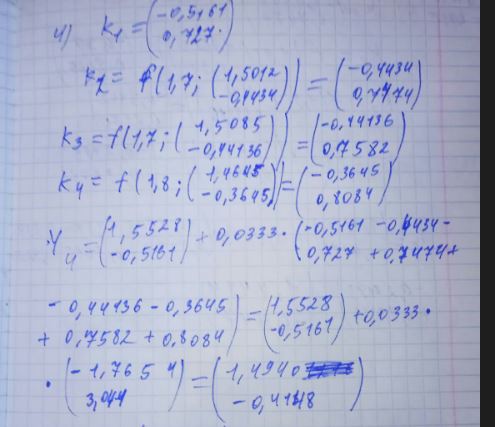 4) k1 = (-0,5161
0,727)
k2 = f(1,7; (1,5012
-0,4434)) = (-0,4434
0,7474)
k3 = f(1,7; (1,5085
-0,44136)) = (-0,44136
0,7582)
k4 = f(1,8; (1,4645
-0,3645)) = (-0,3645
0,8084)
Y4 = (1,5528
-0,5161) + 0,0333 · (-0,5161 -0,4434 -
0,727 + 0,7474 +
- 0,44136 - 0,3645
+ 0,7582 + 0,8084) = (1,5528
-0,5161) + 0,0333 ·
· (-1,7654
3,044) = (1,4940
-0,4148)